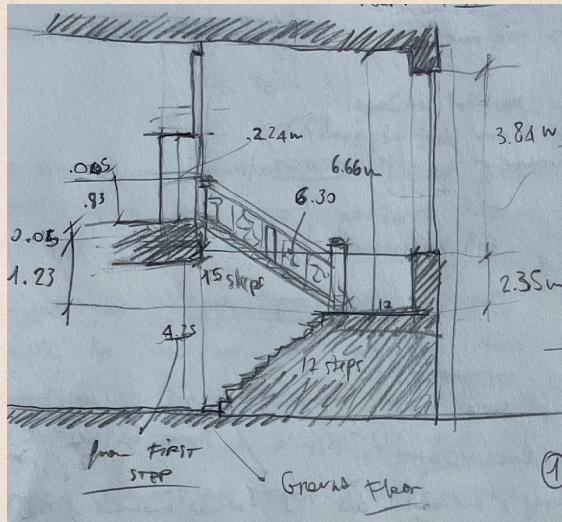 .224m
3.84 m
.005
6.66m
.83
6.30
0.05
1.23
15 steps
2.35m
12
4.25
12 steps
from FIRST
STEP
Ground Floor
1